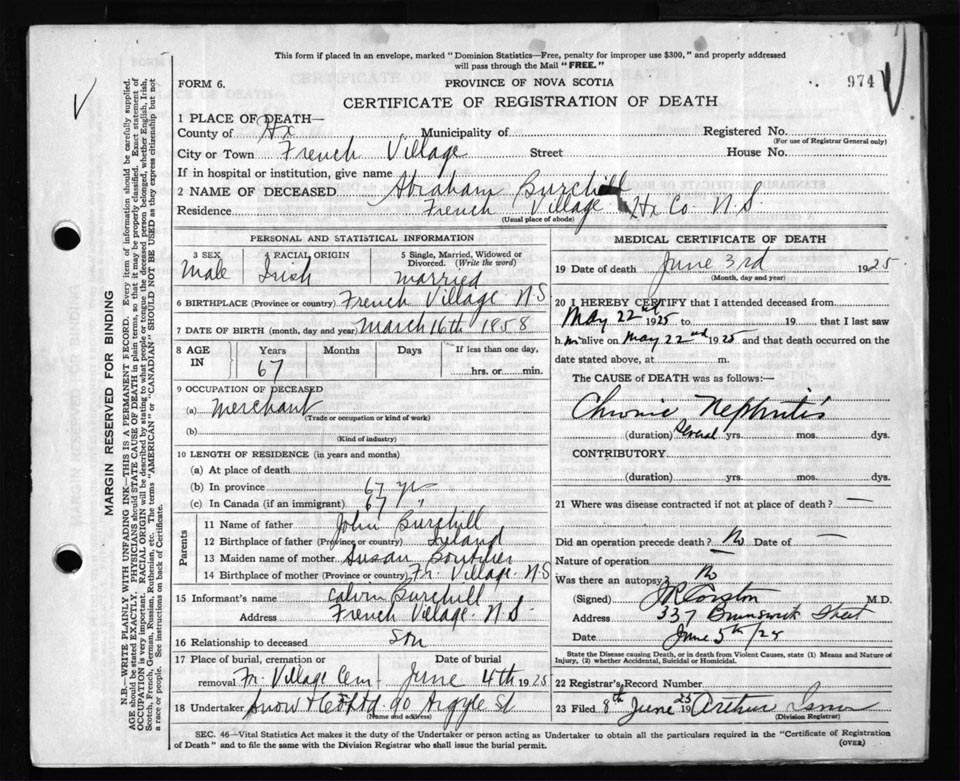 This form if placed in an envelope, marked "Dominion Statistics—Free, penalty for improper use $300," and properly addressed
will pass through the Mail "FREE."
FORM 6.
PROVINCE OF NOVA SCOTIA
974
CERTIFICATE OF REGISTRATION OF DEATH
1 PLACE OF DEATH—
County of Hx Municipality of Registered No.
(For use of Registrar General only)
City or Town French Village Street House No.
If in hospital or institution, give name
2 NAME OF DECEASED Abraham Burchill
Residence French Village Hx Co N.S.
(Usual place of abode)
PERSONAL AND STATISTICAL INFORMATION
3 SEX Male
4 RACIAL ORIGIN Irish
5 Single, Married, Widowed or
Divorced. (Write the word)
married
6 BIRTHPLACE (Province or country) French Village N.S
7 DATE OF BIRTH (month, day and year) March 16th 1858
8 AGE IN
Years Months Days If less than one day,
67 hrs. or min.
9 OCCUPATION OF DECEASED
(a) Merchant
(Trade or occupation or kind of work)
(b)
(Kind of industry)
10 LENGTH OF RESIDENCE (in years and months)
(a) At place of death
(b) In province 67 yr
(c) In Canada (if an immigrant) 67 "
Parents
11 Name of father John Burchill
12 Birthplace of father (Province or country) Ireland
13 Maiden name of mother Susan Boutilier
14 Birthplace of mother (Province or country) Fr. Village N.S
15 Informant's name Calvin Burchill
Address French Village N.S.
16 Relationship to deceased Son
17 Place of burial, cremation or Date of burial
removal Fr. Village Cem June 4th 1925
18 Undertaker Snow & Co Ltd 90 Argyle St
(Name and address)
MEDICAL CERTIFICATE OF DEATH
19 Date of death June 3rd 1925
(Month, day and year)
20 I HEREBY CERTIFY that I attended deceased from
May 22nd 1925 to 19 that I last saw
h im alive on May 22nd 1925 and that death occurred on the
date stated above, at m.
The CAUSE of DEATH was as follows:—
Chronic Nephritis
(duration) Several yrs. mos. dys.
CONTRIBUTORY.
(duration) yrs. mos. dys.
21 Where was disease contracted if not at place of death? —
Did an operation precede death? No Date of —
Nature of operation —
Was there an autopsy? No
(Signed) M.D.
Address 337 Brunswick Street
Date June 5th/25
State the Disease causing Death, or in death from Violent Causes, state (1) Means and Nature of
Injury, (2) whether Accidental, Suicidal or Homicidal.
22 Registrar's Record Number
23 Filed 8th June 1925 Arthur
(Division Registrar)
SEC. 46—Vital Statistics Act makes it the duty of the Undertaker or person acting as Undertaker to obtain all the particulars required in the "Certificate of Registration
of Death" and to file the same with the Division Registrar who shall issue the burial permit.
(OVER)
MARGIN RESERVED FOR BINDING
N.B.—WRITE PLAINLY WITH UNFADING INK—THIS IS A PERMANENT RECORD. Every item of information should be carefully supplied.
AGE should be stated EXACTLY. PHYSICIANS should STATE CAUSE OF DEATH in plain terms, so that it may be properly classified. Exact statement of
OCCUPATION is very important. RACIAL ORIGIN will be described by stating to what people or tongue the deceased person belonged, whether English, Irish,
Scotch, French, German, Russian, Ruthenian, etc. The terms "AMERICAN" or "CANADIAN" SHOULD NOT BE USED as they express citizenship but not
a race or people. See instructions on back of Certificate.